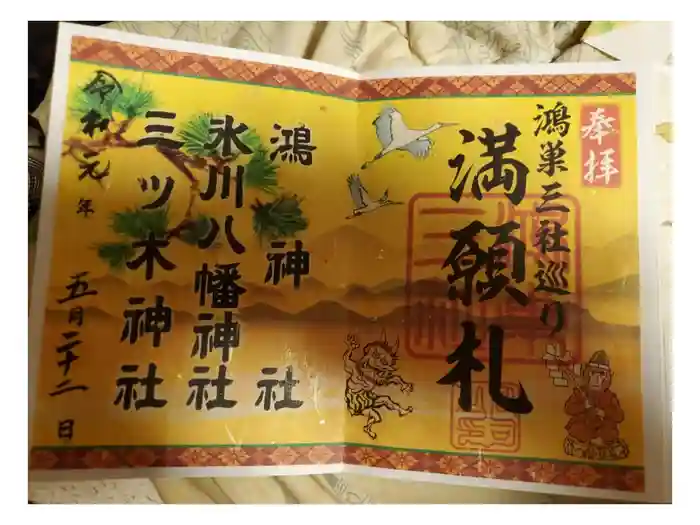 奉拝
鴻巣三社巡り
満願札
鴻神社
氷川八幡神社
三ツ木神社
令和元年 五月二十二日